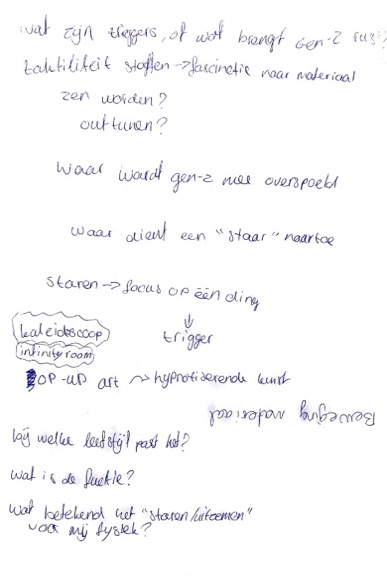 wat zijn triggers, of wat brengt Gen-Z rust?
taktiliteit stoffen → fascinatie naar materiaal
zen worden?
outtunen?
waar wordt gen-z mee overspoeld
waar dient een "staar" naartoe
staren → focus op één ding
↓
trigger
kaleidoscoop
infinityroom
pop-up art ~> hypnotiserende kunst
Beweging materiaal
bij welke leefstijl past het?
wat is de functie?
wat betekend het "staren/uitzoemen"
voor mij fysiek?